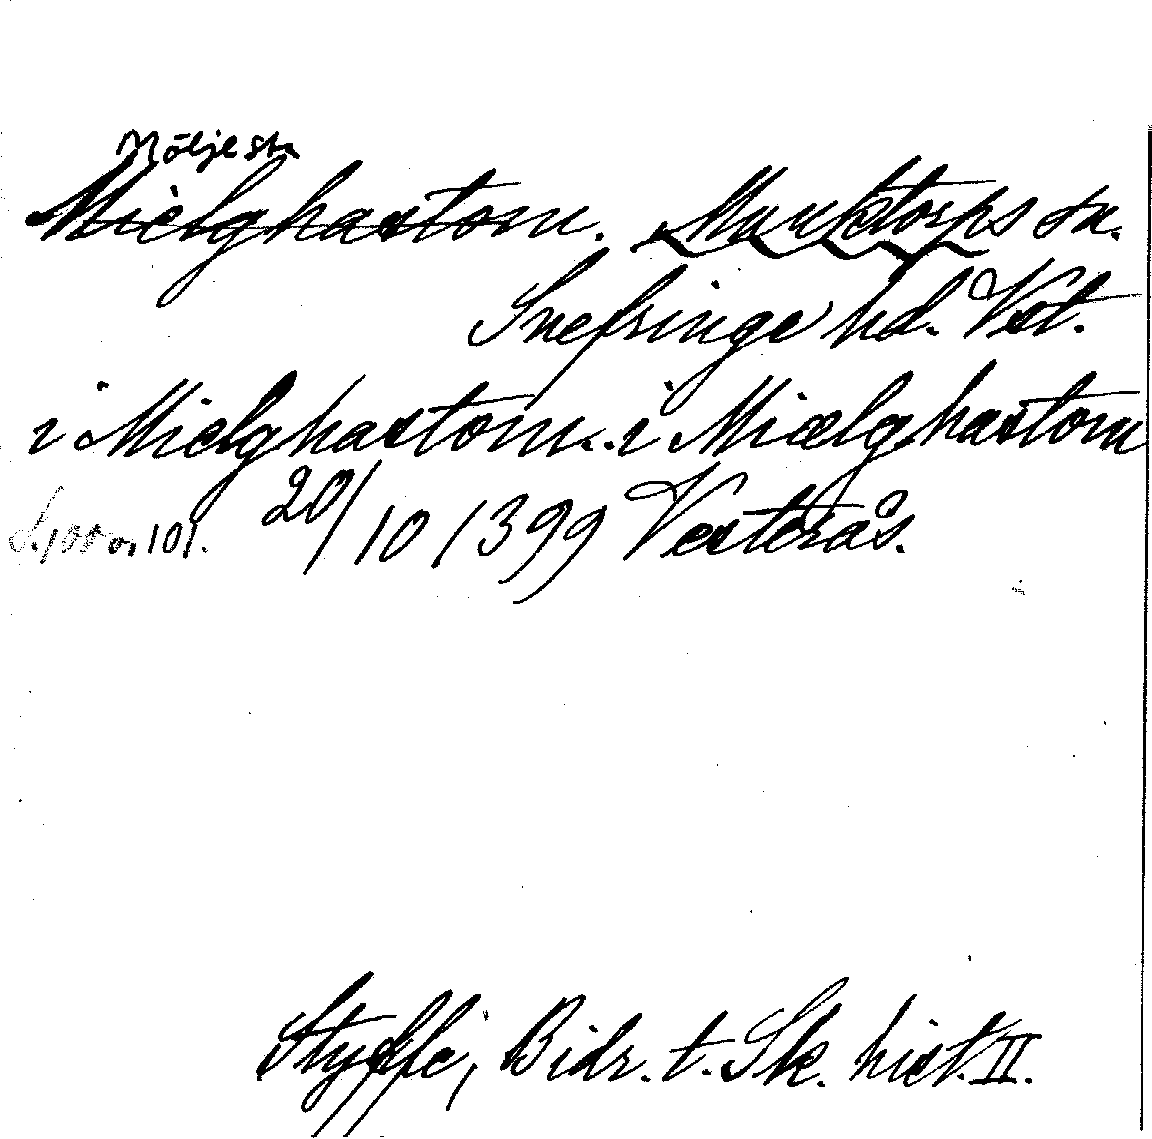 Möljesta
Mielghastom. Munktorps sn.
Snefringe hd. Vst.
i Mielghastom. i Miælghastom
S. 100 o. 101. 20/10 1399 Vesterås.
Styffe, Bidr. t. Sk. hist. II.